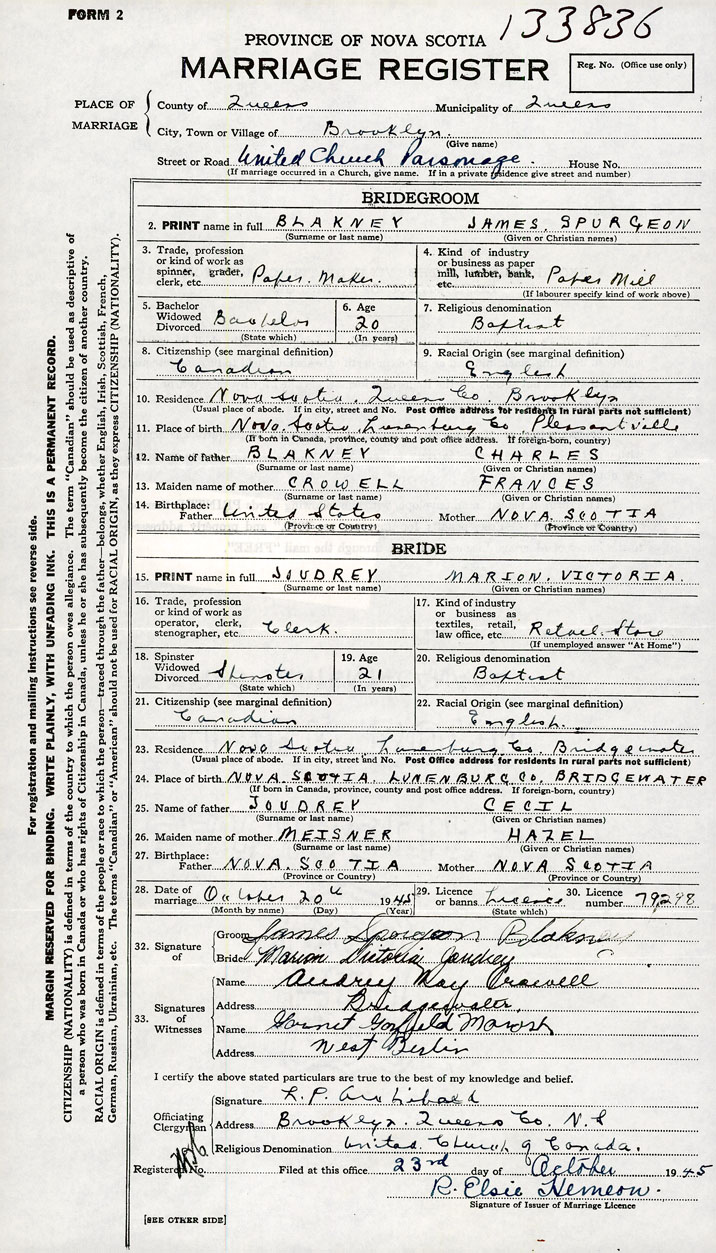 FORM 2
133836
PROVINCE OF NOVA SCOTIA
MARRIAGE REGISTER
Reg. No. (Office use only)
PLACE OF MARRIAGE
County of Queens Municipality of Queens
City, Town or Village of Brooklyn.
(Give name)
Street or Road United Church Parsonage. House No.
(If marriage occurred in a Church, give name. If in a private residence give street and number)
BRIDEGROOM
2. PRINT name in full BLAKNEY JAMES. SPURGEON
(Surname or last name) (Given or Christian names)
3. Trade, profession or kind of work as spinner, grader, clerk, etc. Paper. Maker.
4. Kind of industry or business as paper mill, lumber, bank, etc. Paper Mill
(If labourer specify kind of work above)
5. Bachelor Widowed Divorced Bachelor
(State which)
6. Age 20
(In years)
7. Religious denomination
Baptist
8. Citizenship (see marginal definition)
Canadian
9. Racial Origin (see marginal definition)
English
10. Residence Nova Scotia. Queens Co. Brooklyn
(Usual place of abode. If in city, street and No. Post Office address for residents in rural parts not sufficient)
11. Place of birth Nova Scotia Lunenburg Co Pleasantville
(If born in Canada, province, county and post office address. If foreign-born, country)
12. Name of father BLAKNEY CHARLES
(Surname or last name) (Given or Christian names)
13. Maiden name of mother CROWELL FRANCES
(Surname or last name) (Given or Christian names)
14. Birthplace: Father United States Mother NOVA. SCOTIA
(Province or Country) (Province or Country)
BRIDE
15. PRINT name in full JOUDREY MARION. VICTORIA.
(Surname or last name) (Given or Christian names)
16. Trade, profession or kind of work as operator, clerk, stenographer, etc. Clerk.
17. Kind of industry or business as textiles, retail, law office, etc. Retail Store
(If unemployed answer "At Home")
18. Spinster Widowed Divorced Spinster
(State which)
19. Age 21
(In years)
20. Religious denomination
Baptist
21. Citizenship (see marginal definition)
Canadian
22. Racial Origin (see marginal definition)
English.
23. Residence Nova Scotia, Lunenburg Co. Bridgewater
(Usual place of abode. If in city, street and No. Post Office address for residents in rural parts not sufficient)
24. Place of birth NOVA. SCOTIA. LUNENBURG. CO. BRIDGEWATER
(If born in Canada, province, county and post office address. If foreign-born, country)
25. Name of father JOUDREY CECIL
(Surname or last name) (Given or Christian names)
26. Maiden name of mother MEISNER HAZEL
(Surname or last name) (Given or Christian names)
27. Birthplace: Father NOVA. SCOTIA Mother NOVA SCOTIA
(Province or Country) (Province or Country)
28. Date of marriage October 20th 1945
(Month by name) (Day) (Year)
29. Licence or banns Licence
(State which)
30. Licence number 79298
32. Signature of
Groom James Spurgeon Blakney
Bride Marion Victoria Joudrey
33. Signatures of Witnesses
Name Audrey May Crowell
Address Bridgewater.
Name Garnet Garfield
Address West Berlin
I certify the above stated particulars are true to the best of my knowledge and belief.
Officiating Clergyman
Signature L. P. Archibald
Address Brooklyn. Queens Co. N.S
Religious Denomination United. Church of Canada.
Registered No. Filed at this office 23rd day of October 1945
R. Elsie Hemeon.
Signature of Issuer of Marriage Licence
[SEE OTHER SIDE]
For registration and mailing instructions see reverse side.
MARGIN RESERVED FOR BINDING. WRITE PLAINLY, WITH UNFADING INK. THIS IS A PERMANENT RECORD.
CITIZENSHIP (NATIONALITY) is defined in terms of the country to which the person owes allegiance. The term "Canadian" should be used as descriptive of
a person who was born in Canada or who has rights of Citizenship in Canada, unless he or she has subsequently become the citizen of another country.
RACIAL ORIGIN is defined in terms of the people or race to which the person—traced through the father—belongs, whether English, Irish, Scottish, French,
German, Russian, Ukrainian, etc. The terms "Canadian" or "American" should not be used for RACIAL ORIGIN, as they express CITIZENSHIP (NATIONALITY).